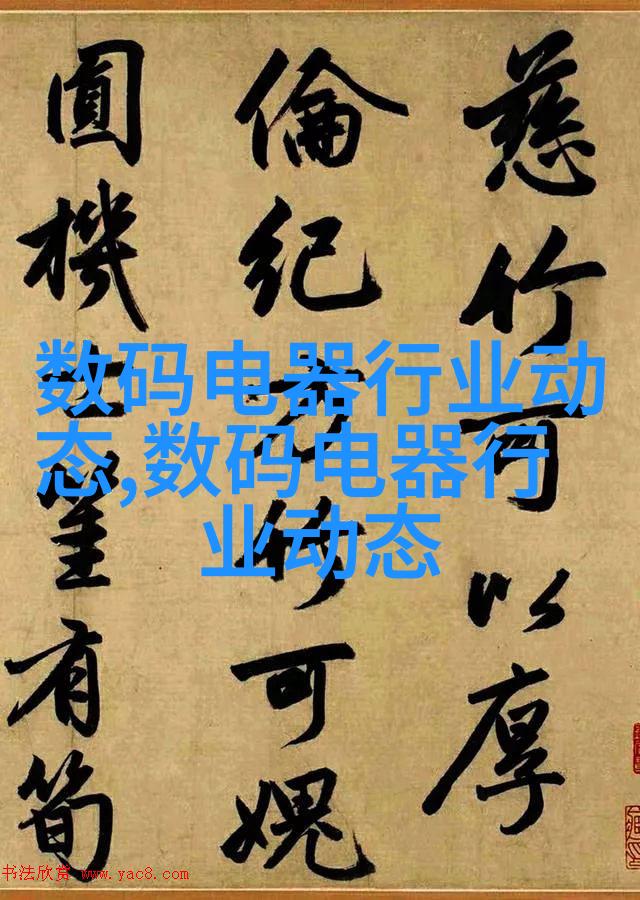 慈竹可以厚
倫紀方竹可媿
圓機有筍
数码电器行业动
态,数码电器行
业动态
书法欣赏 www.yac8.com